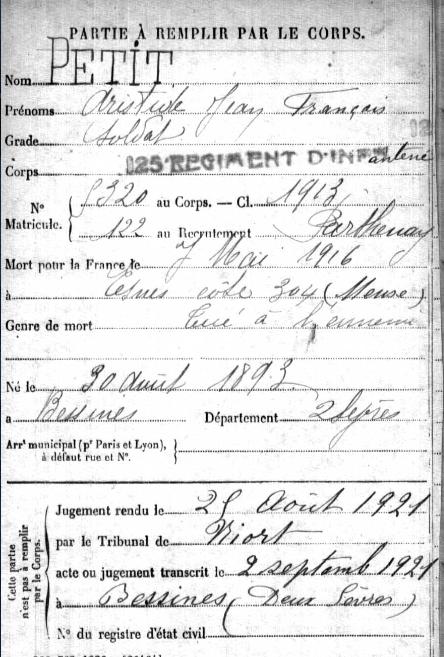 PARTIE À REMPLIR PAR LE CORPS.
Nom PETIT
Prénoms Aristide Jean François
Grade Soldat
Corps 125 REGIMENT D'INFanterie
N° 5320 au Corps. — Cl. 1913
Matricule. 122 au Recrutement Parthenay
Mort pour la France le 7 Mai 1916
à Esnes côte 304 (Meuse)
Genre de mort tué à l'ennemi
Né le 30 août 1893
a Bessines Département 2 Sèvres
Arrt municipal (pr Paris et Lyon),
à défaut rue et N°.
Cette partie n'est pas à remplir par le Corps.
Jugement rendu le 25 Août 1921
par le Tribunal de Niort
acte ou jugement transcrit le 2 septemb 1921
à Bessines (Deux Sèvres)
N° du registre d'état civil